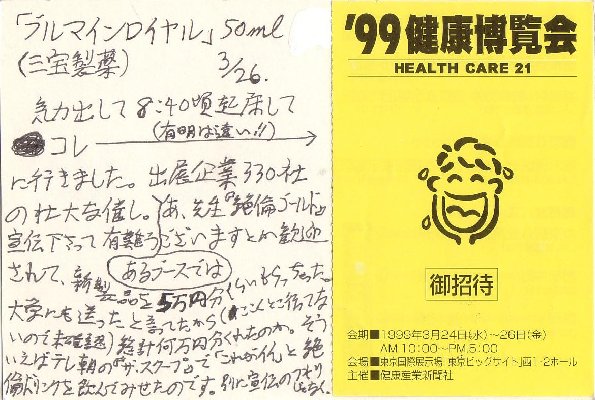 「ブルマインロイヤル」50ml
(三宝製薬) 3/26.
気力出して8:40頃起床して
(有明は遠い!!)
コレ
に行きました。出展企業330社
の壮大な催し。あ、先生『絶倫ゴールド』
宣伝下さって有難うございますとの歓迎
されて、あるブースでは
新製品を5万円分くらいもらっちゃった。
大学にも送ったと言ってたから(まこんとこ行ってな
いので未確認)総計何万円分くれたのか。そう
いえばテレ朝の『ザ・スクープ』で「これが仔ん」と絶
倫ドリンクを飲んでみせたのです。別に宣伝のつもりじゃなく。
'99健康博覧会
HEALTH CARE 21
御招待
会期■1999年3月24日(水)~26日(金)
AM10:00~PM.5:00
会場■東京国際展示場 東京ビッグサイト西1・2ホール
主催■健康産業新聞社